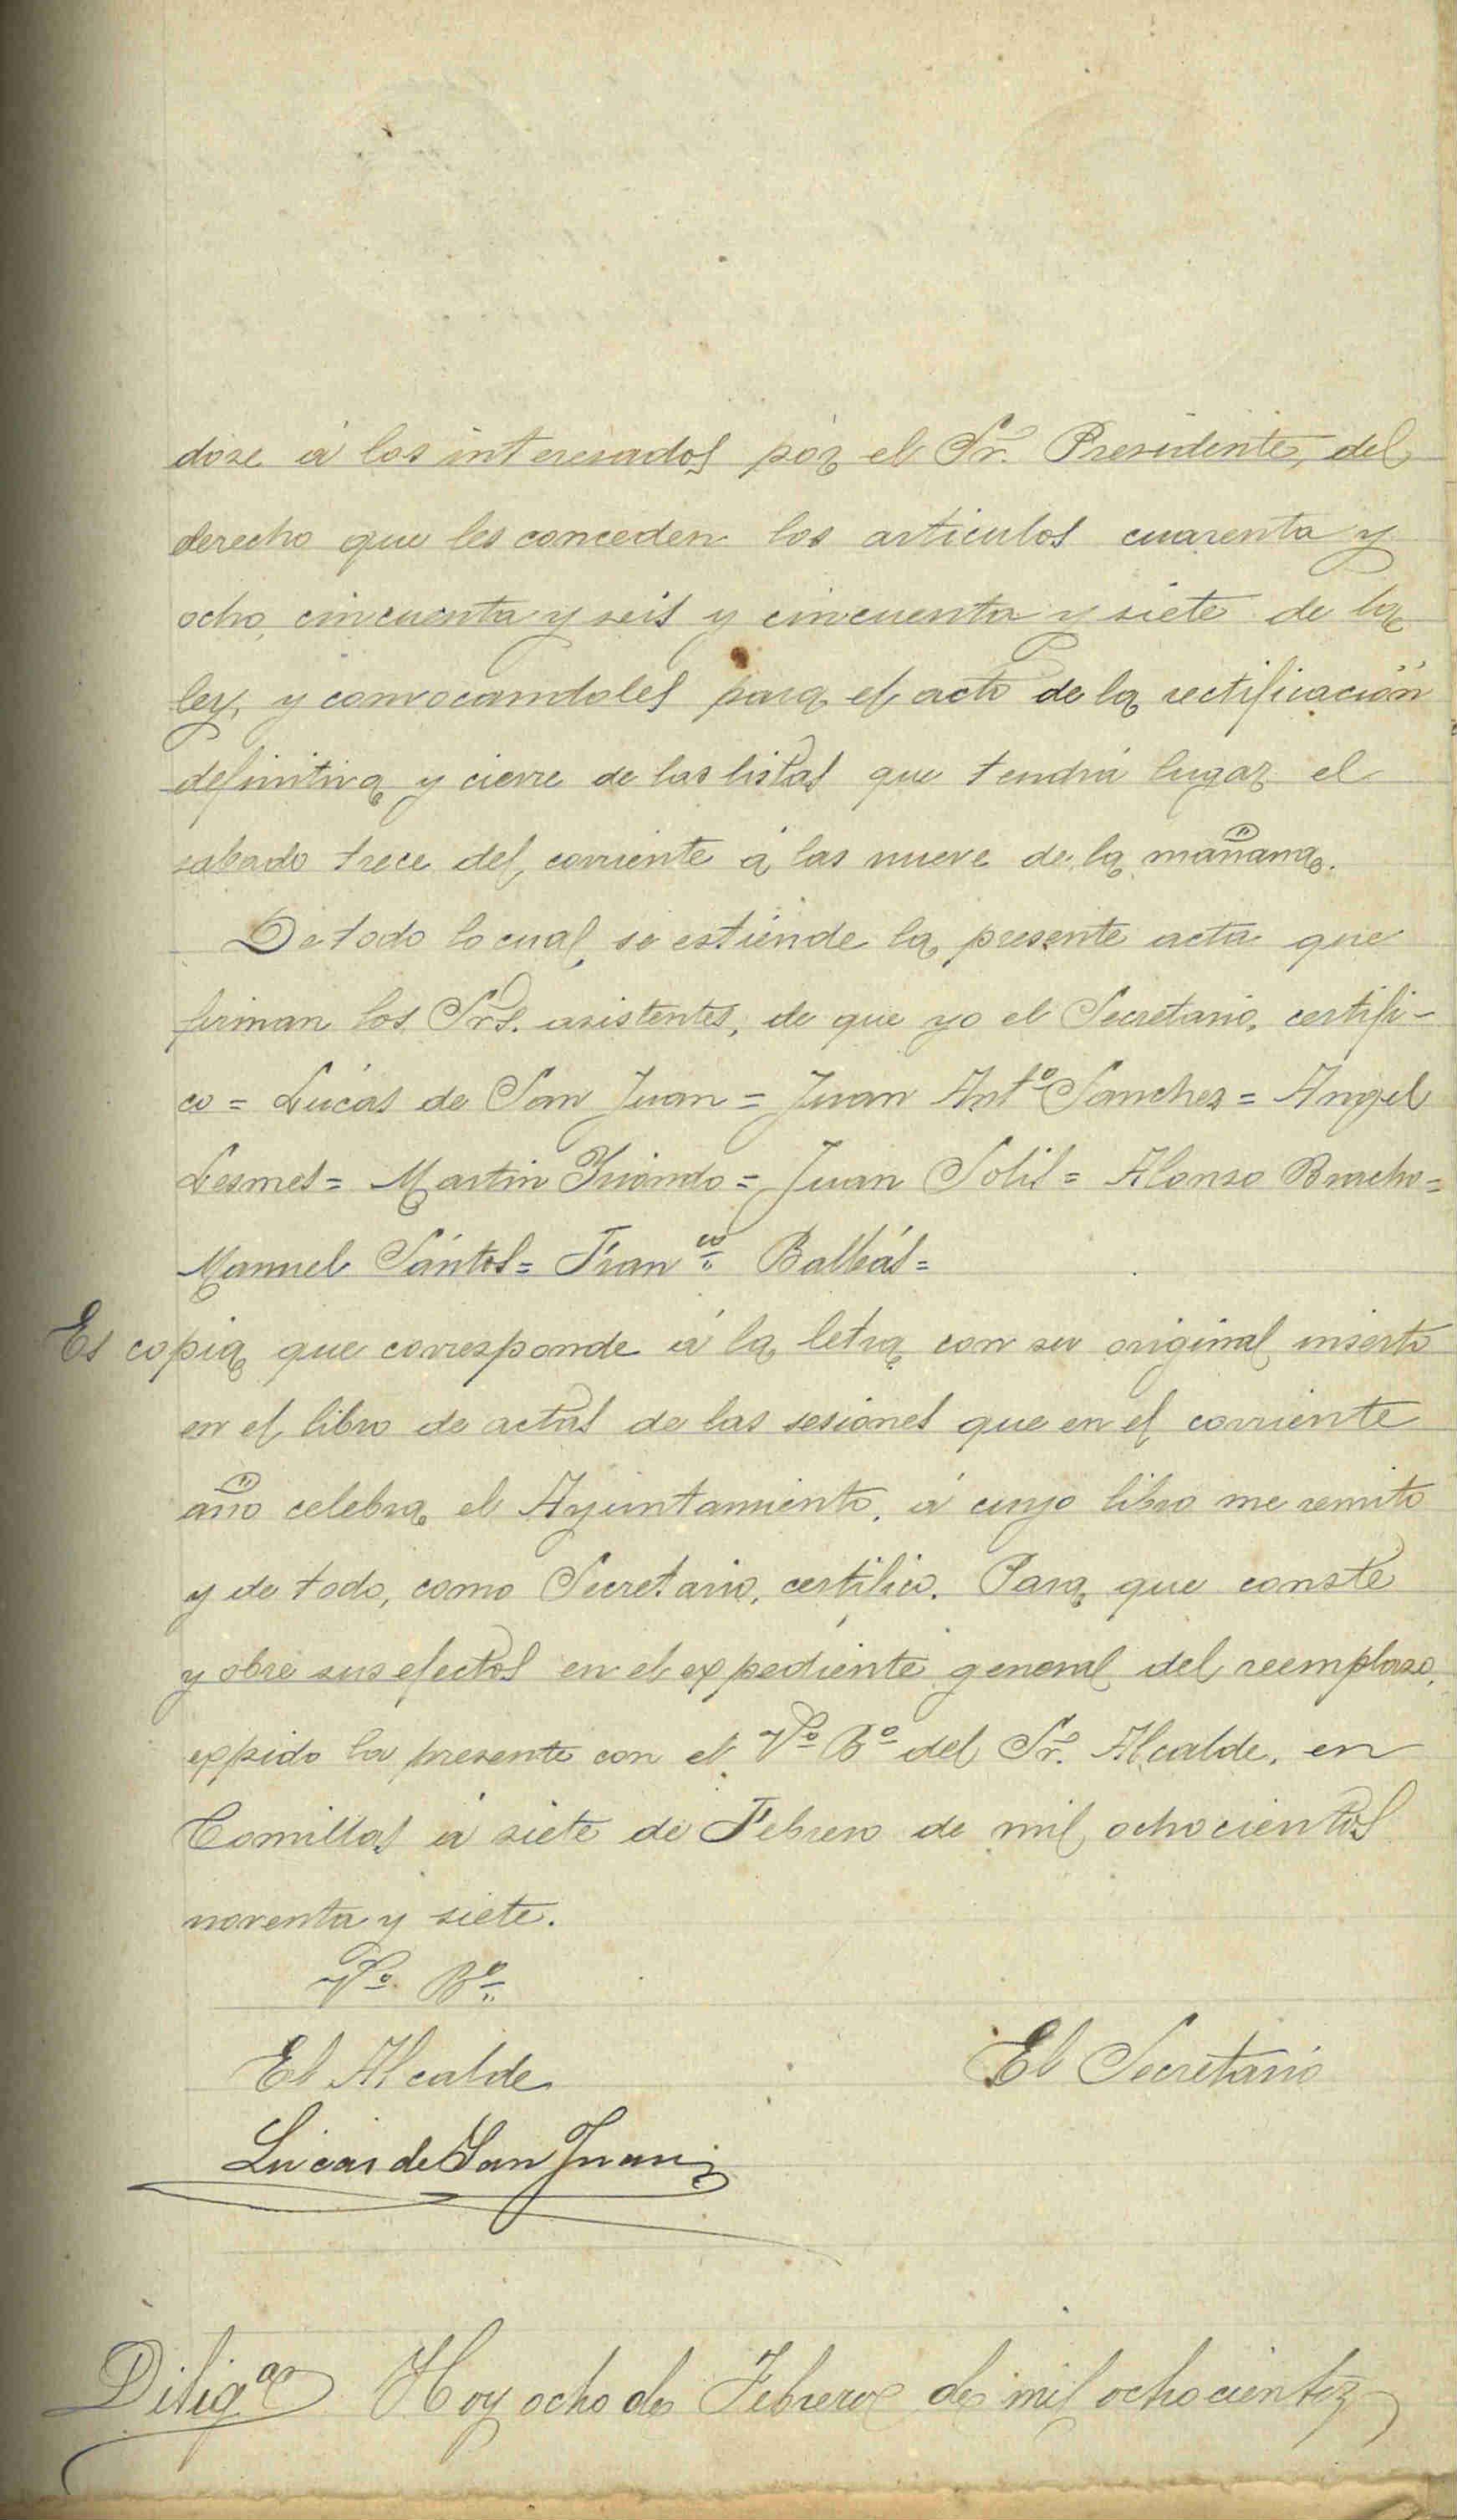 dose á los interesados por el Sr. Presidente, del
derecho que les conceden los articulos cuarenta y
ocho, cincuenta y seis y cincuenta y siete de la
ley, y convocandoles para el acto de la rectificación
definitiva y cierre de las listas que tendrá lugar el
sabado trece del corriente á las nueve de la mañana.
De todo lo cual se estiende la presente acta que
firman los Srs. asistentes, de que yo el Secretario, certifi-
co = Lúcas de San Juan = Juan Antº Sanchez = Angel
Lesmes = Martin = Juan Solis = Alonso =
Manuel Sántos = Franco Balbás =
Es copia que corresponde á la letra con su original inserto
en el libro de actas de las sesiones que en el corriente
año celebra el Ayuntamiento, á cuyo libro me remito
y de todo, como Secretario, certifico. Para que conste
y obre sus efectos en el expediente general del reemplazo,
expido la presente con el Vº Bº del Sr. Alcalde, en
Comillas á siete de Febrero de mil ochocientos
noventa y siete.
Vº Bº
El Alcalde
El Secretario
Lucas de San Juan
Diligª Hoy ocho de Febrero de mil ochocientos